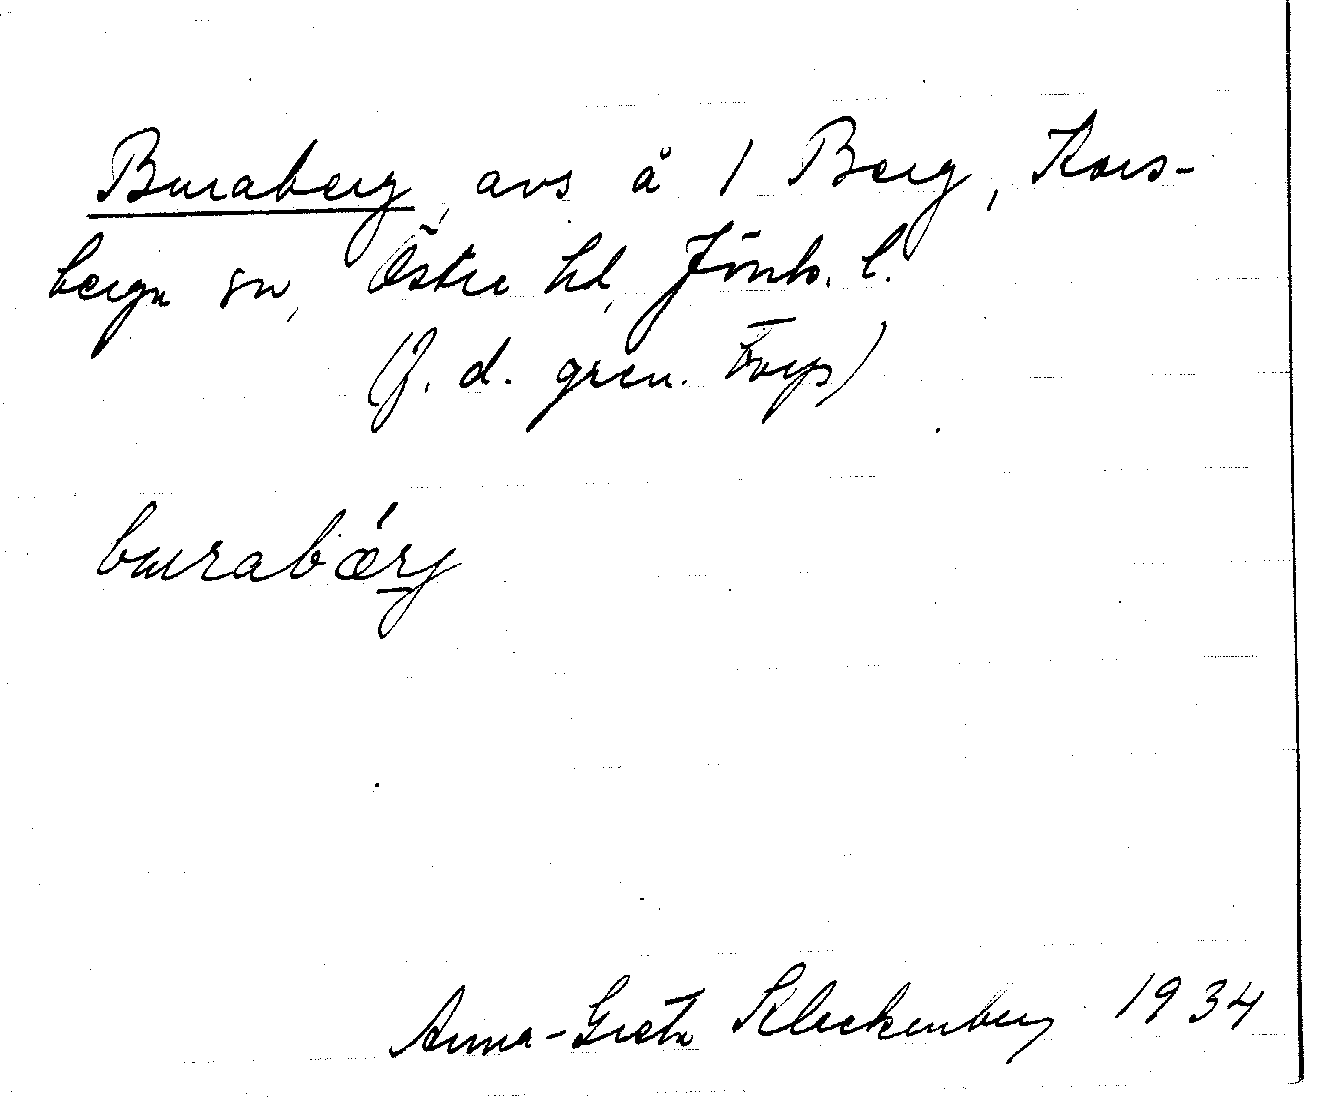 Buraberg, avs å 1 Berg, Kors-
berga sn, Östra hd, Jönk. l.
(J. d. gren. Torp)
burabǽrj
Anna-Greta Kleckenberg 1934